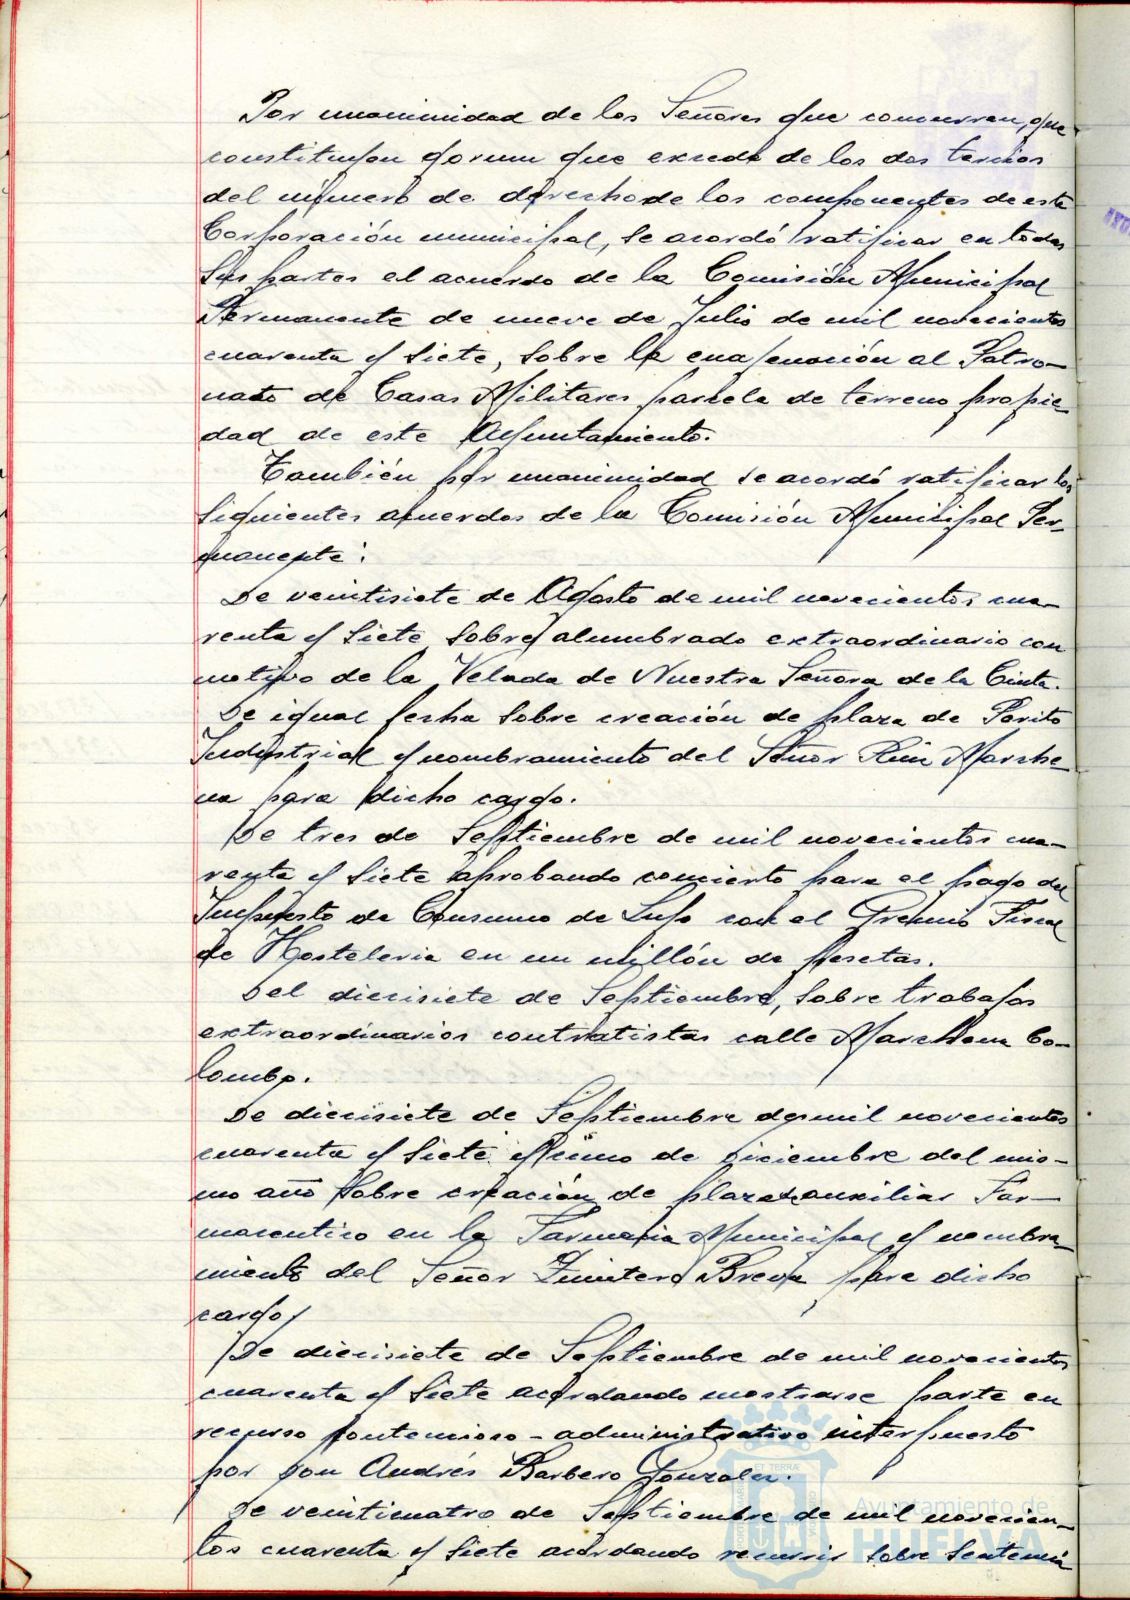 Por unanimidad de los Señores que concurren, que
constituyen qorum que excede de los dos tercios
del número de derecho de los componentes de esta
Corporación municipal, se acordó ratificar en todas
sus partes el acuerdo de la Comisión Municipal
Permanente de nueve de Julio de mil novecientos
cuarenta y siete, sobre la enajenación al Patro-
nato de Casas Militares parcela de terreno propie-
dad de este Ayuntamiento.
También por unanimidad se acordó ratificar los
siguientes acuerdos de la Comisión Municipal Per-
manente:
De veintisiete de Agosto de mil novecientos cua-
renta y siete sobre alumbrado extraordinario con
motivo de la Velada de Nuestra Señora de la Cinta.
De igual fecha sobre creación de plaza de Perito
Industrial y nombramiento del Señor Ruiz Marche-
na para dicho cargo.
De tres de Septiembre de mil novecientos cua-
renta y siete aprobando concierto para el pago del
Impuesto de Consumo de Lujo con el Gremio Fiscal
de Hosteleria en un millón de pesetas.
Del diecisiete de Septiembre, sobre trabajos
extraordinarios contratistas calle Marchena Co-
lombo.
De diecisiete de Septiembre de mil novecientos
cuarenta y siete y de diciembre del mis-
mo año sobre creación de plaza auxiliar Far-
maceutico en la Farmacia Municipal y nombra-
miento del Señor Quintero Breva para dicho
cargo,
De diecisiete de Septiembre de mil novecientos
cuarenta y siete acordando mostrarse parte en
recurso contencioso-administrativo interpuesto
por Don Andrés Barbero Gonzalez.
De veinticuatro de Septiembre de mil novecien-
tos cuarenta y siete acordando recurrir sobre sentencia
Ayuntamiento de
HUELVA